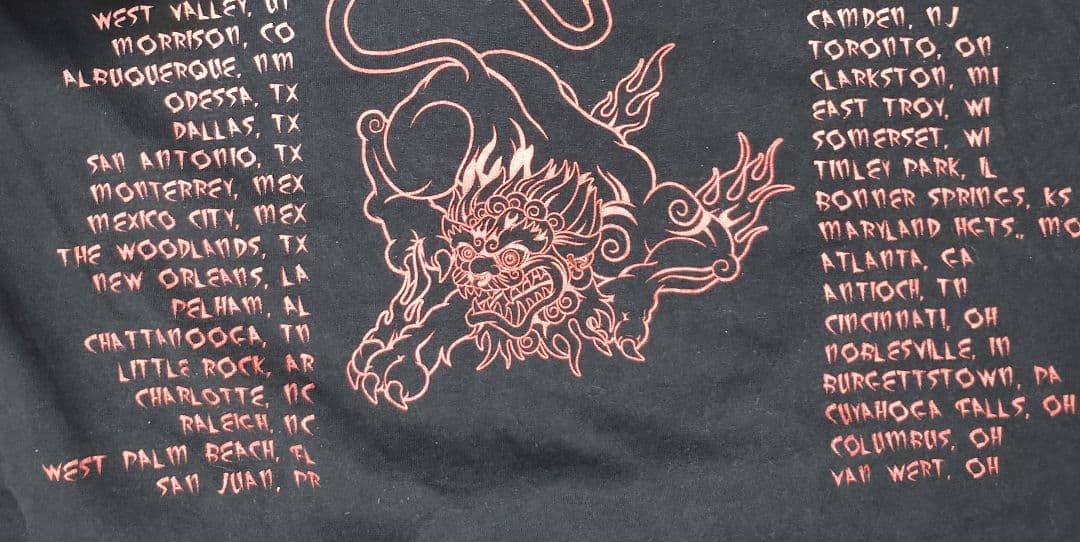 WEST VALLEY, UT
MORRISON, CO
ALBUQUERQUE, NM
ODESSA, TX
DALLAS, TX
SAN ANTONIO, TX
MONTERREY, MEX
MEXICO CITY, MEX
THE WOODLANDS, TX
NEW ORLEANS, LA
PELHAM, AL
CHATTANOOGA, TN
LITTLE ROCK, AR
CHARLOTTE, NC
RALEIGH, NC
WEST PALM BEACH, FL
SAN JUAN, PR
CAMDEN, NJ
TORONTO, ON
CLARKSTON, MI
EAST TROY, WI
SOMERSET, WI
TINLEY PARK, IL
BONNER SPRINGS, KS
MARYLAND HGTS., MO
ATLANTA, GA
ANTIOCH, TN
CINCINNATI, OH
NOBLESVILLE, IN
BURGETTSTOWN, PA
CUYAHOGA FALLS, OH
COLUMBUS, OH
VAN WERT, OH